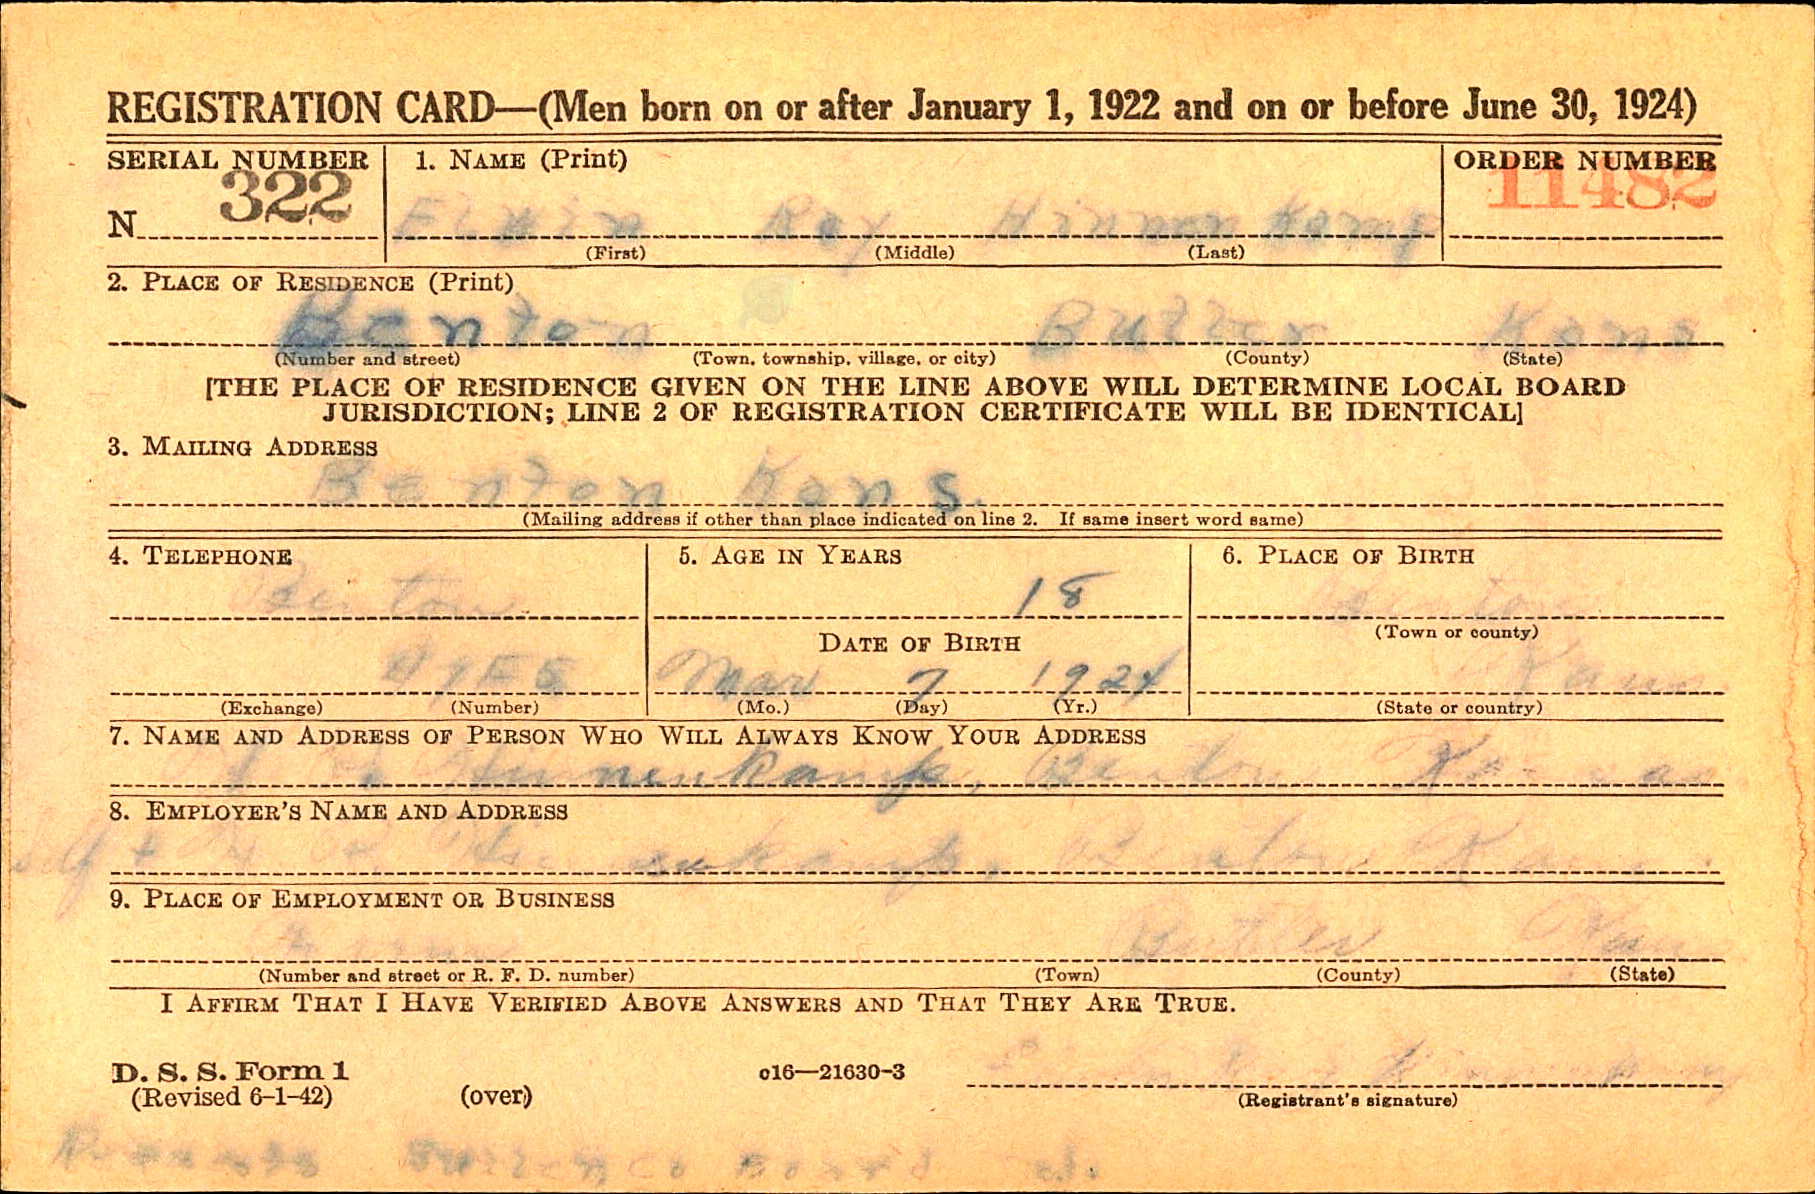 REGISTRATION CARD—(Men born on or after January 1, 1922 and on or before June 30, 1924)
SERIAL NUMBER 1. NAME (Print) ORDER NUMBER
N 322 Roy 11482
(First) (Middle) (Last)
2. PLACE OF RESIDENCE (Print)
Benton Butler Kans
(Number and street) (Town, township, village, or city) (County) (State)
[THE PLACE OF RESIDENCE GIVEN ON THE LINE ABOVE WILL DETERMINE LOCAL BOARD
JURISDICTION; LINE 2 OF REGISTRATION CERTIFICATE WILL BE IDENTICAL]
3. MAILING ADDRESS
Benton Kans.
(Mailing address if other than place indicated on line 2. If same insert word same)
4. TELEPHONE 5. AGE IN YEARS 6. PLACE OF BIRTH
Benton 18 Benton
(Town or county)
DATE OF BIRTH
Mar 7 1924 Kans.
(Exchange) (Number) (Mo.) (Day) (Yr.) (State or country)
7. NAME AND ADDRESS OF PERSON WHO WILL ALWAYS KNOW YOUR ADDRESS
Hinnenkamp, Benton Kansas
8. EMPLOYER'S NAME AND ADDRESS
Self + Hinnenkamp, Benton Kans.
9. PLACE OF EMPLOYMENT OR BUSINESS
Butler Kans
(Number and street or R. F. D. number) (Town) (County) (State)
I AFFIRM THAT I HAVE VERIFIED ABOVE ANSWERS AND THAT THEY ARE TRUE.
D. S. S. Form 1
(Revised 6-1-42) (over) c16—21630-3
(Registrant's signature)